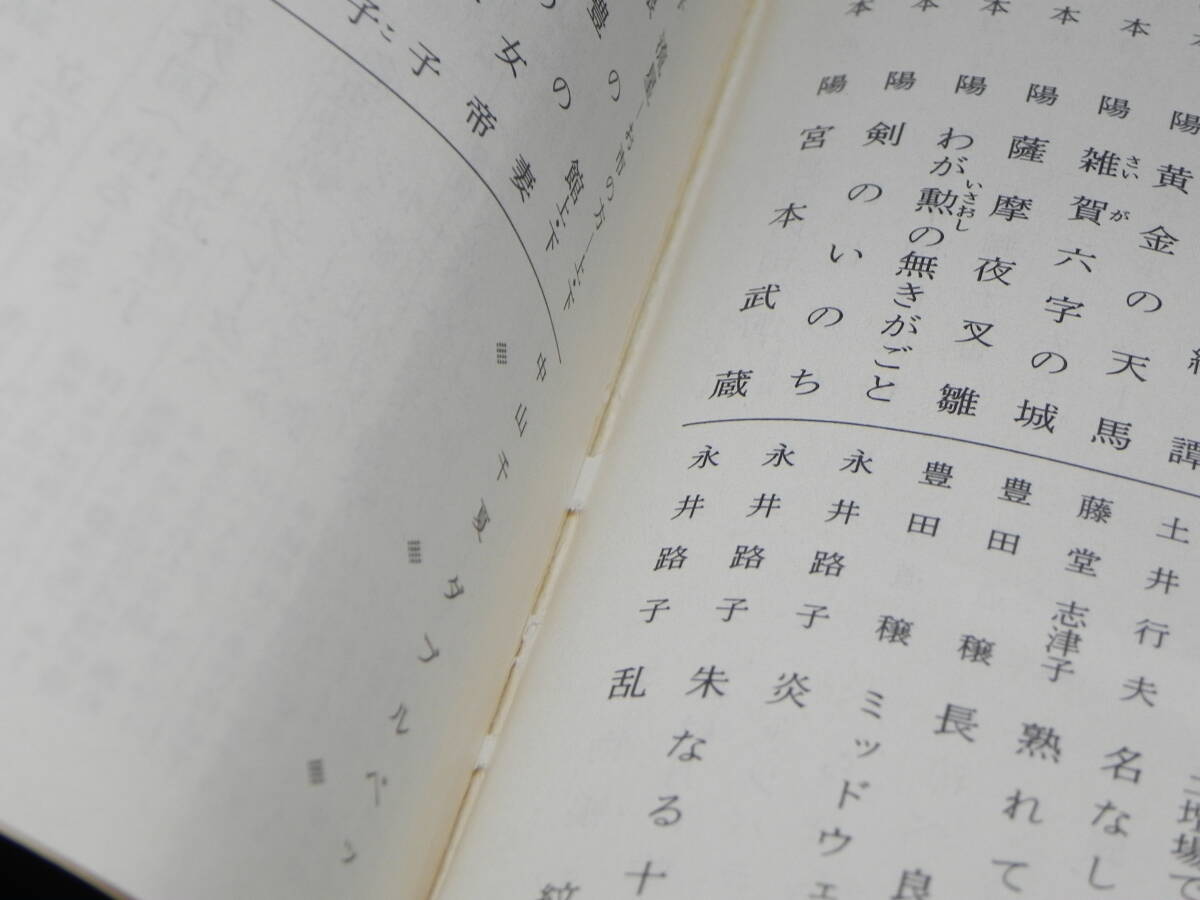 本陽 黄金の天馬
本陽 雑賀六字の城
さいが
本陽 薩摩夜叉雛
本陽 わが勲の無きがごと
いさおし
本陽 剣のいのち
本陽 宮本武蔵
土井行夫 名なし
藤堂志津子 熟れて
豊田穣 長良
豊田穣 ミッドウェ
永井路子 炎
永井路子 朱なる十
永井路子 乱紋
お市の方―上・下
の館 上・下
の妻
女帝
子
中山千夏 ダブルベッ